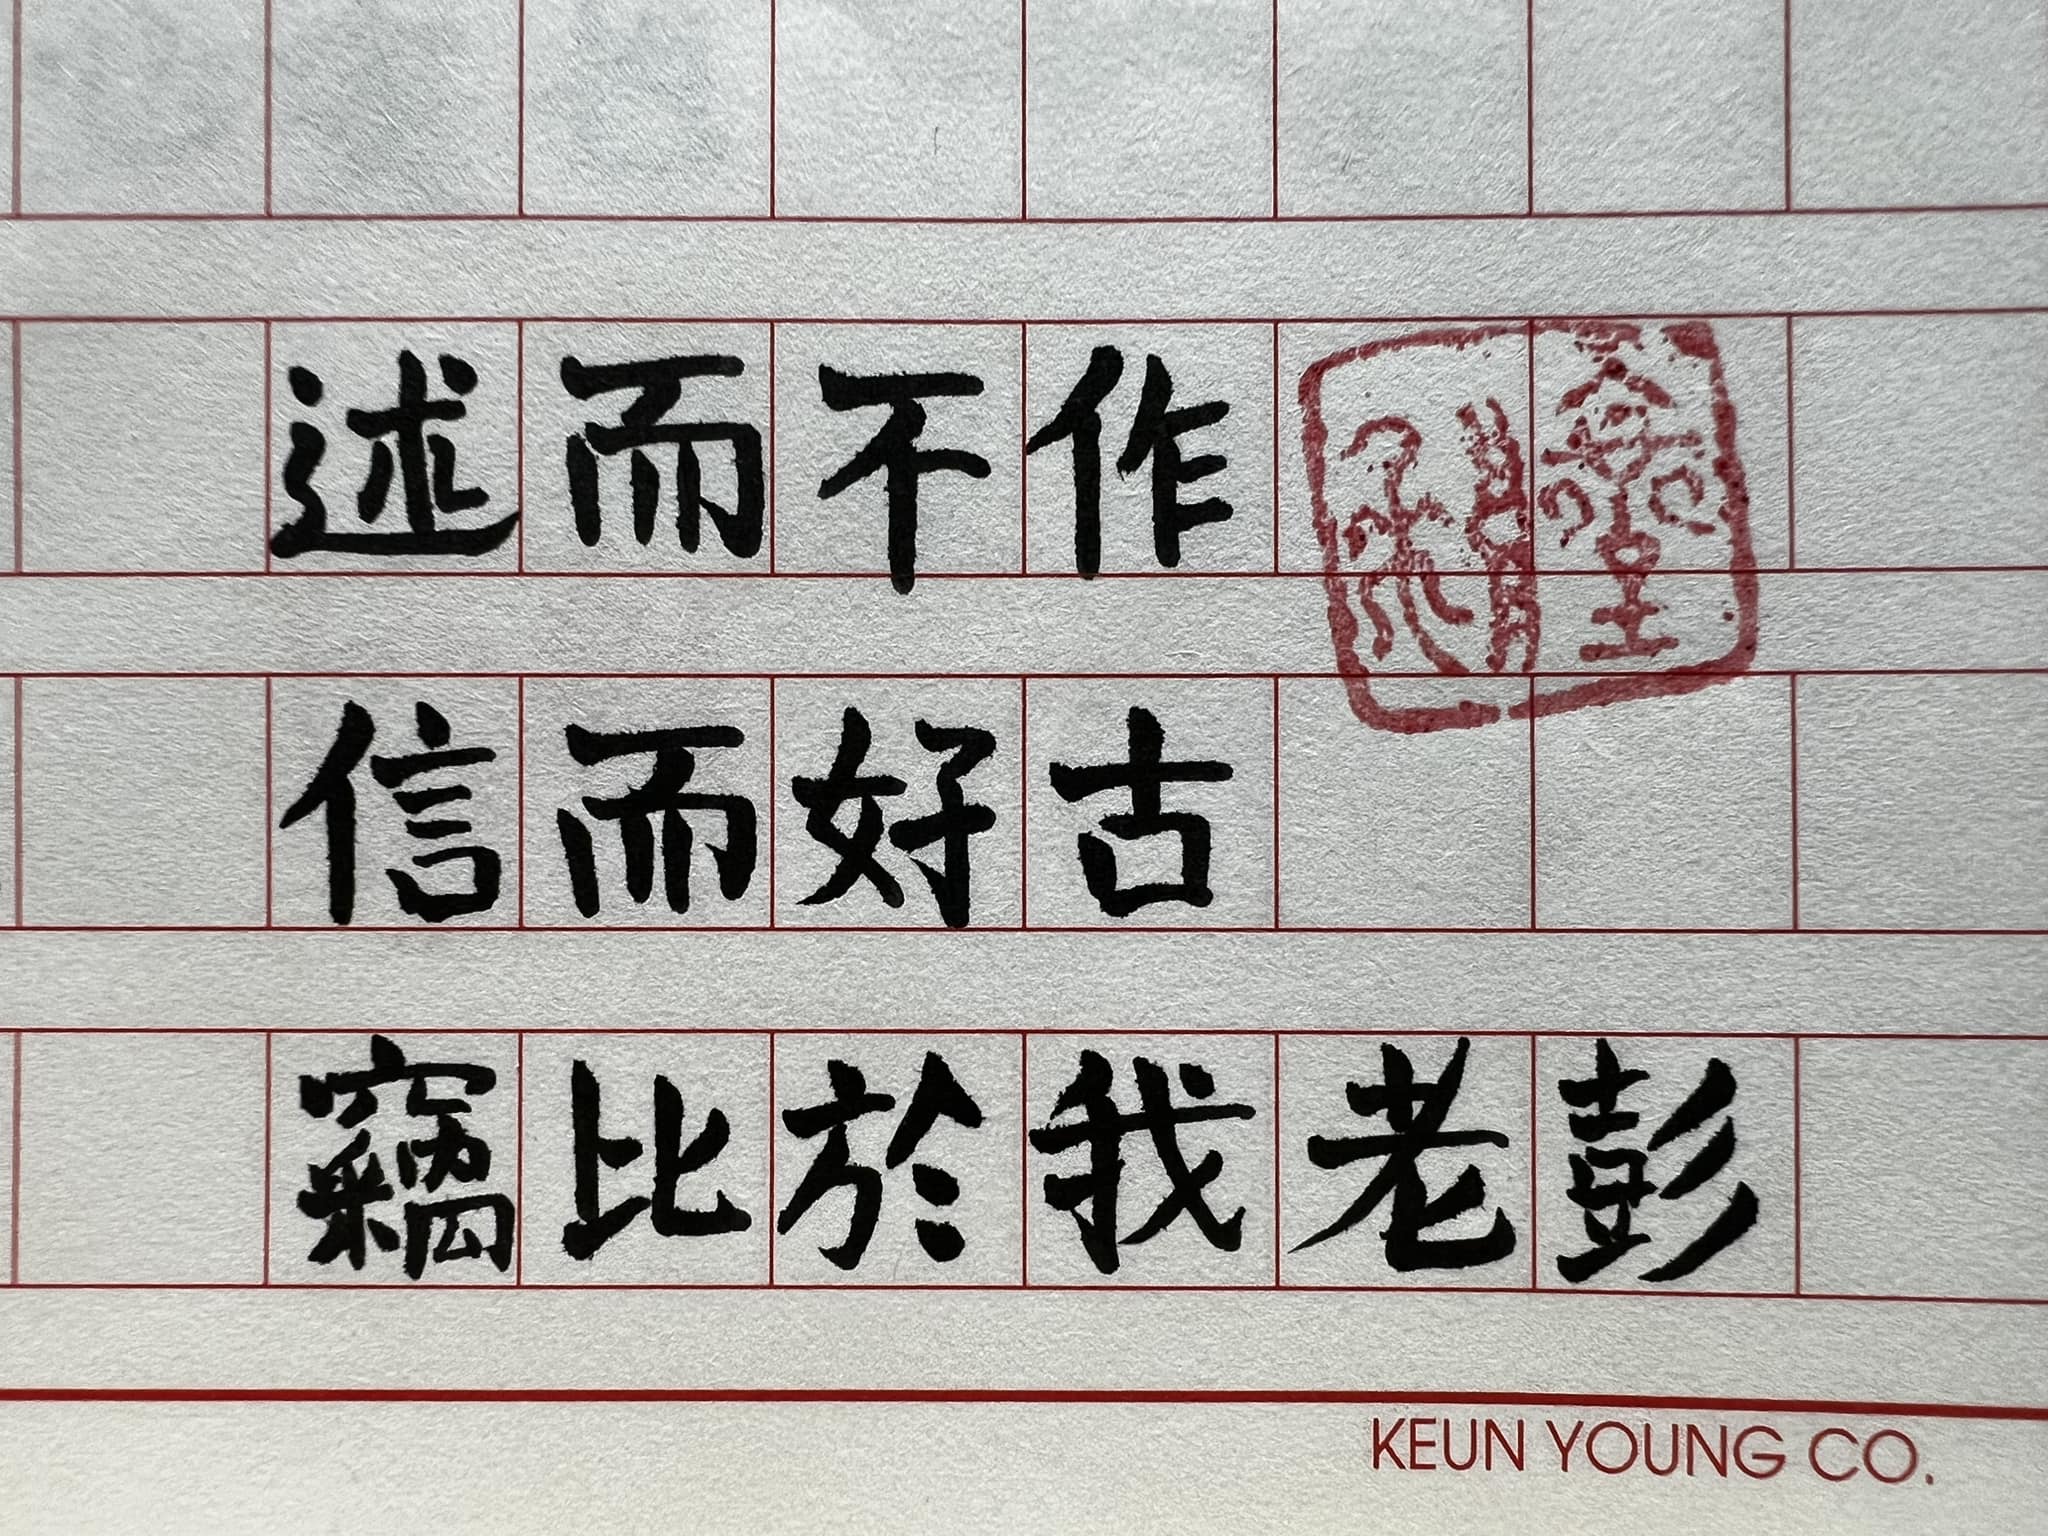 述而不作
信而好古
竊比於我老彭
KEUN YOUNG CO.